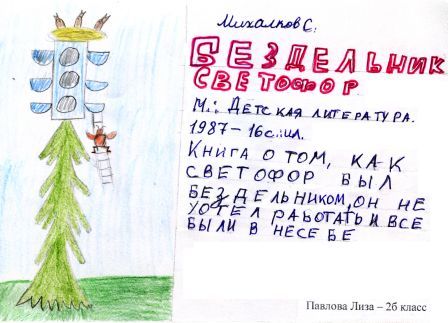 Михалков С.
БЕЗДЕЛЬНИК
СВЕТОФОР
М.: ДЕТСКАЯ ЛИТЕРАТУРА.
1987-16с.:ил.
КНИГА О ТОМ, КАК
СВЕТОФОР БЫЛ
БЕЗДЕЛЬНИКОМ, ОН НЕ
ХОТЕЛ РАБОТАТЬ И ВСЕ
БЫЛИ В НЕСЕБЕ
Павлова Лиза – 2б класс